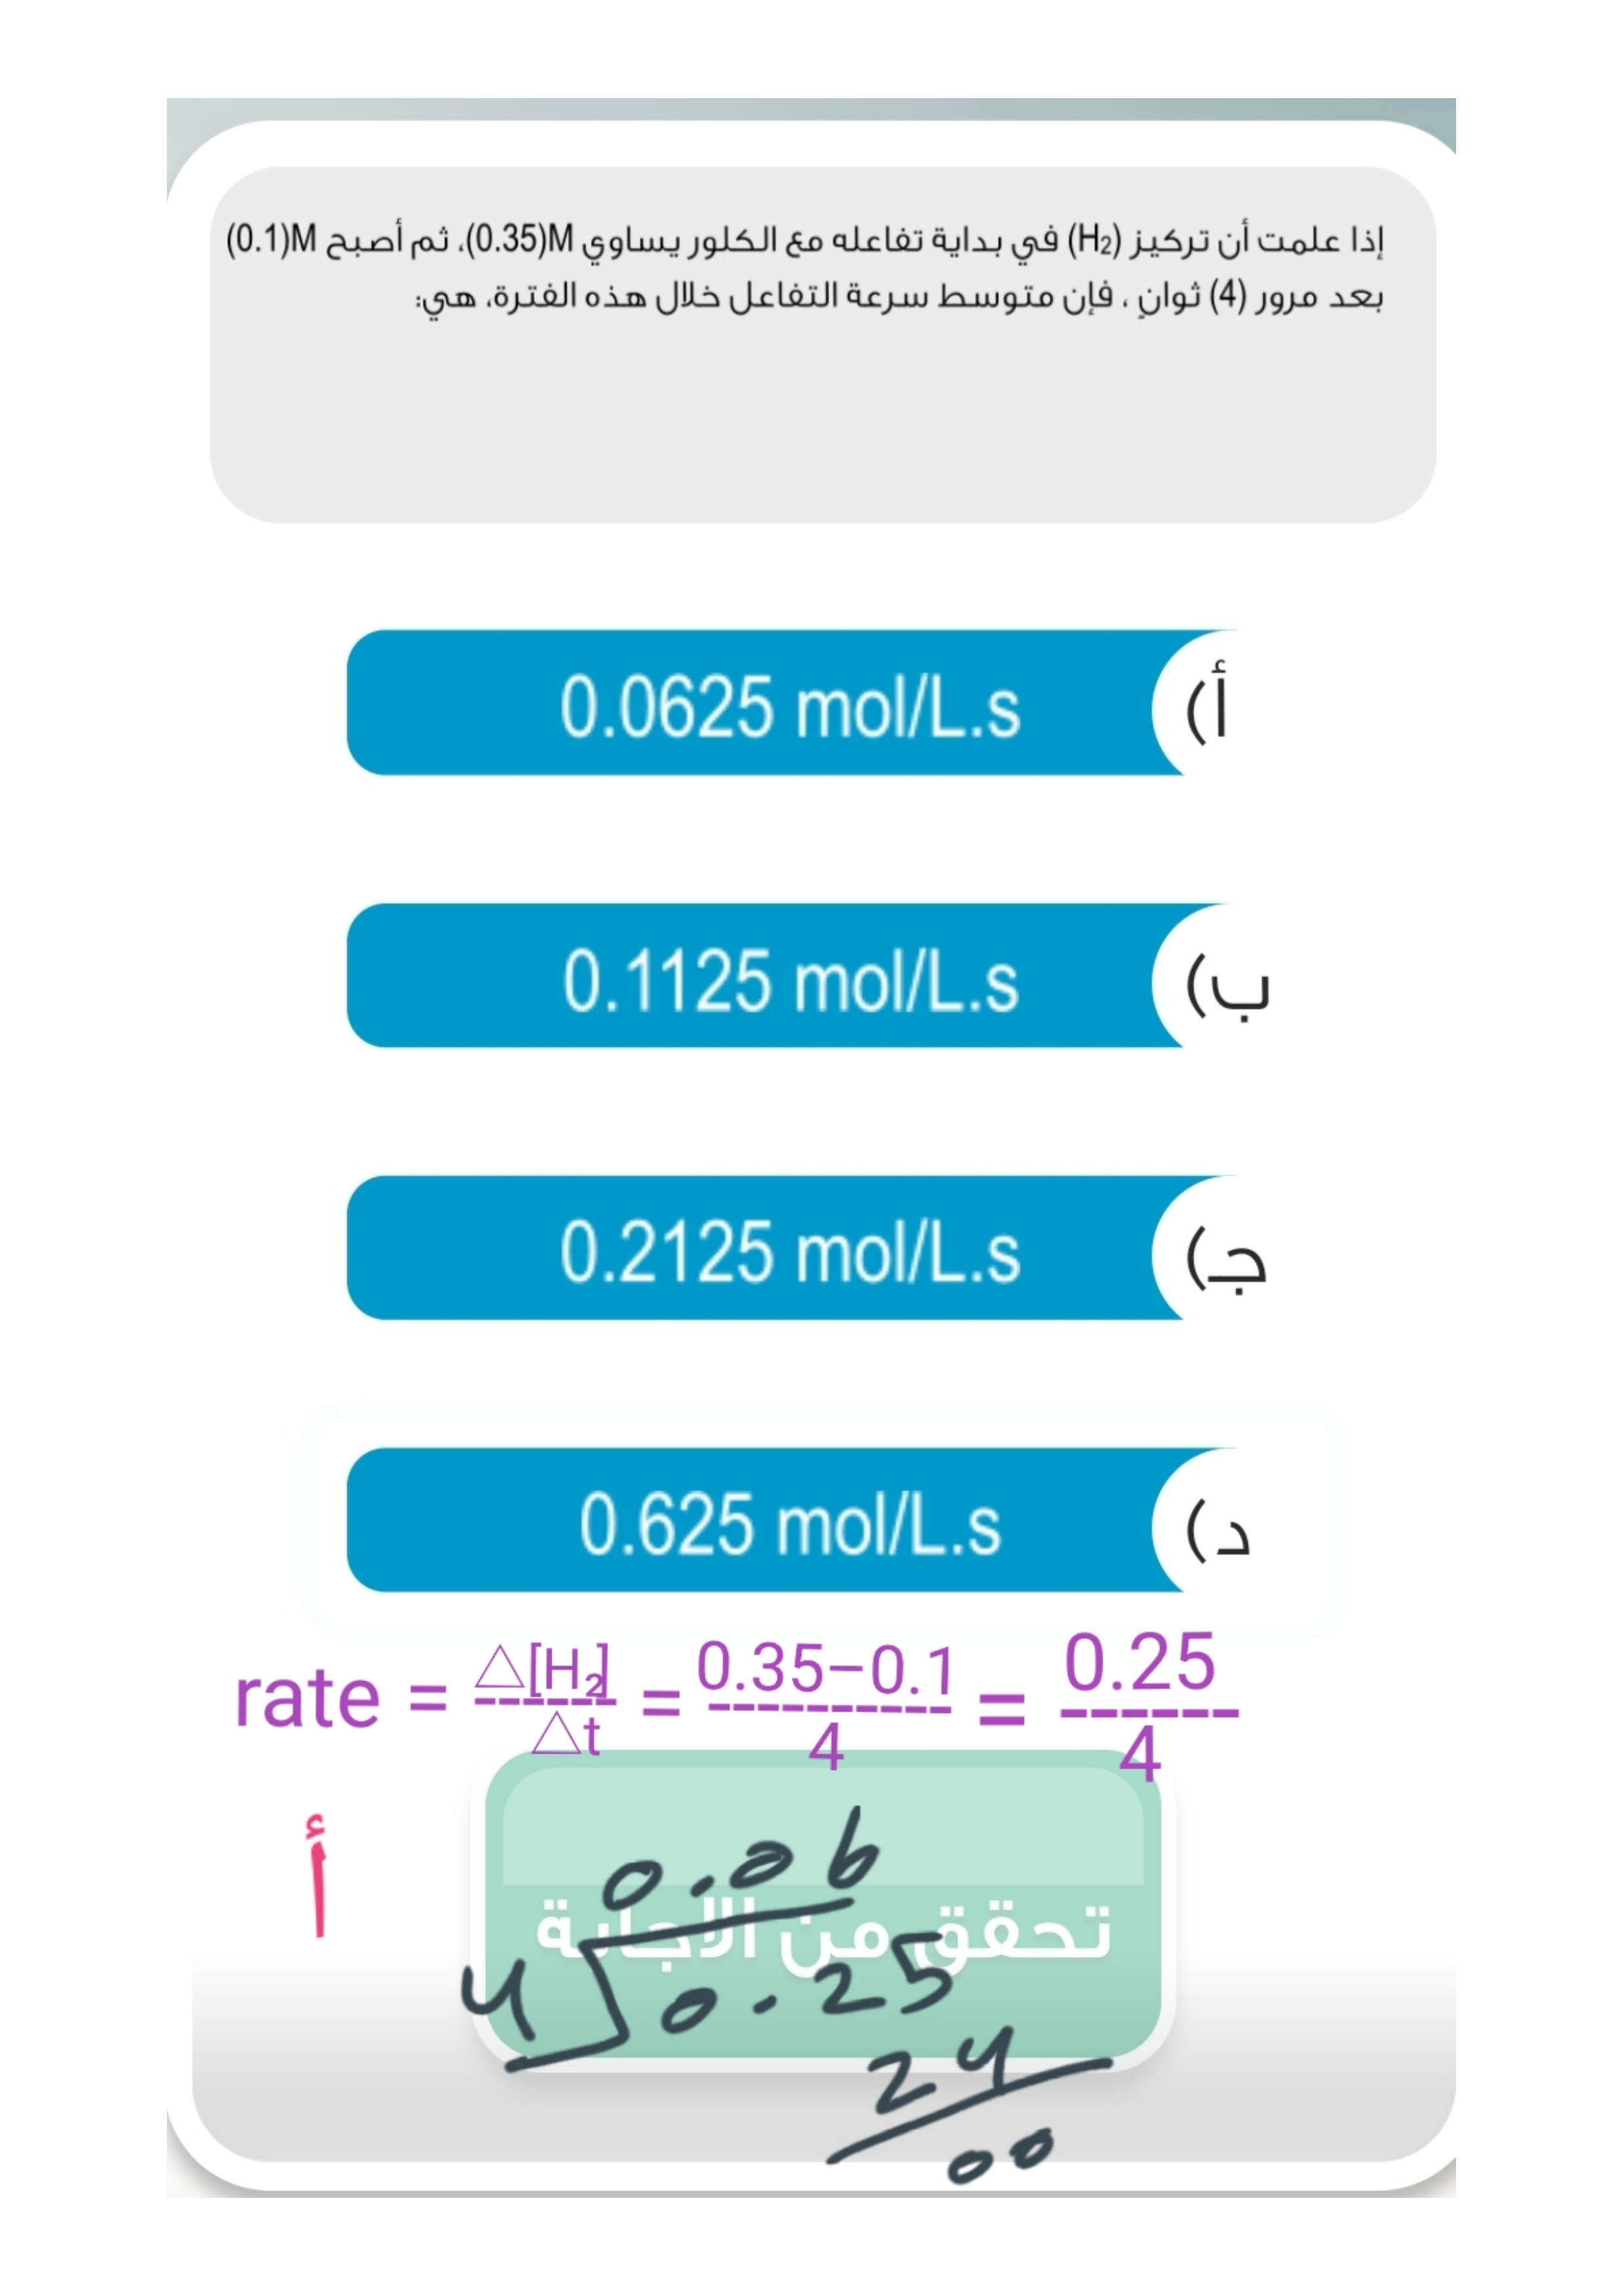 إذا علمت أن تركيز (H₂) في بداية تفاعله مع الكلور يساوي M(0.35)، ثم أصبح M(0.1)
بعد مرور (4) ثوانٍ ، فإن متوسط سرعة التفاعل خلال هذه الفترة، هي:
أ) 0.0625 mol/L.s
ب) 0.1125 mol/L.s
ج) 0.2125 mol/L.s
د) 0.625 mol/L.s
rate = △[H₂] / △t = 0.35–0.1 / 4 = 0.25 / 4
أ
تحقق من الاجابة
0.06
4 0.25
24
00